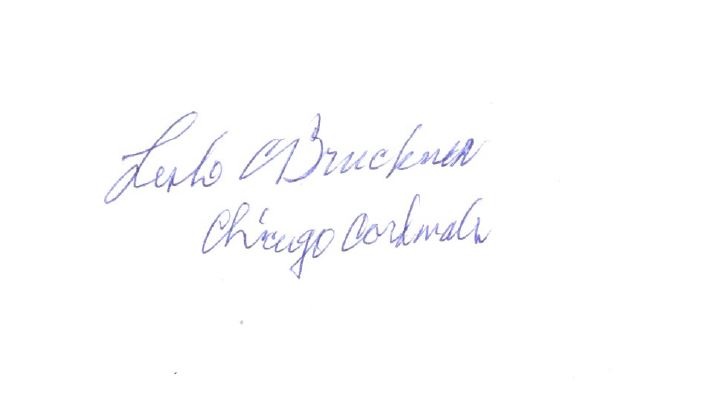 Leslo C Bruckner
Chicago Cardinals